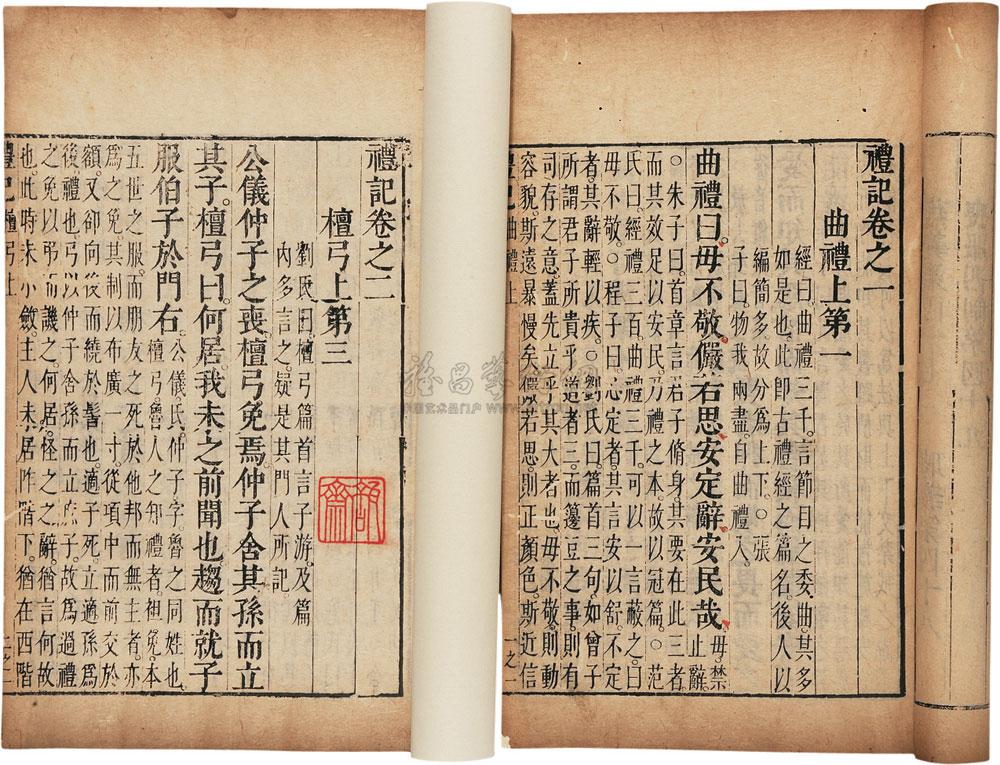 禮記卷之一
曲禮上第一
經曰曲禮三千言節目之委曲其多
如是也此卽古禮經之篇名後人以
編簡多故分爲上下○張
子曰物我兩盡自曲禮入
曲禮曰毋不敬儼若思安定辭安民哉毋禁
止辭
○朱子曰首章言君子脩身其要在此三者
而其效足以安民乃禮之本故以冠篇○范
氏曰經禮三百曲禮三千可以一言蔽之曰
毋不敬○程子曰心定者其言安以舒不定
者其辭輕以疾○劉氏曰篇首三句如曾子
所謂君子所貴乎道者三而籩豆之事則有
司存之意蓋先立乎其大者也毋不敬則動
容貌斯遠暴慢矣儼若思則正顏色斯近信
禮記曲禮上
一之一
禮記卷之二
檀弓上第三
劉氏曰檀弓篇首言子游及篇
內多言之疑是其門人所記
公儀仲子之喪檀弓免焉仲子舍其孫而立
其子檀弓曰何居我未之前聞也趨而就子
服伯子於門右公儀氏仲子字魯之同姓也
檀弓魯人之知禮者袒免本
五世之服而朋友之死於他邦而無主者亦
爲之免其制以布廣一寸從項中而前交於
額又卻向後而繞於髻也適子死立適孫爲
後禮也弓以仲子舍孫而立庶子故爲過禮
之免以弔而譏之何居怪之之辭猶言何故
也此時未小斂主人未居阼階下猶在西階
禮記檀弓上
二之一